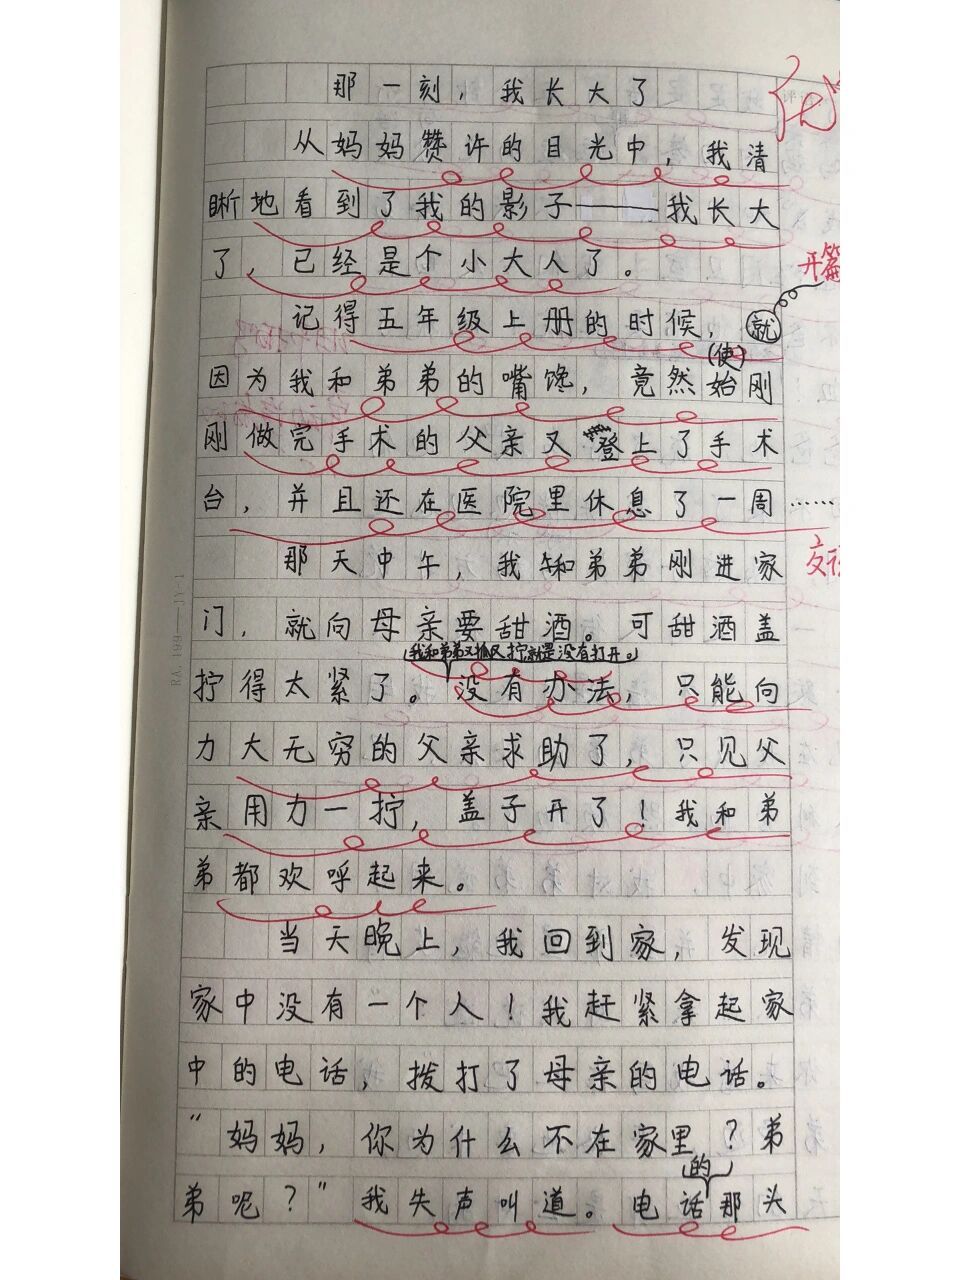 那一刻，我长大了
从妈妈赞许的目光中，我清
晰地看到了我的影子——我长大
了，已经是个小大人了。
开篇
记得五年级上册的时候，就
(使)
因为我和弟弟的嘴馋，竟然始刚
刚做完手术的父亲又登上了手术
台，并且还在医院里休息了一周……
交
那天中午，我和弟弟刚进家
门，就向母亲要甜酒。可甜酒盖
(我和弟弟又抓又拧就是没有打开。)
拧得太紧了。没有办法，只能向
力大无穷的父亲求助了，只见父
亲用力一拧，盖子开了！我和弟
弟都欢呼起来。
当天晚上，我回到家，发现
家中没有一个人！我赶紧拿起家
中的电话，拨打了母亲的电话。
“妈妈，你为什么不在家里？弟
(的)
弟呢？”我失声叫道。电话那头
RA.199—IY-1